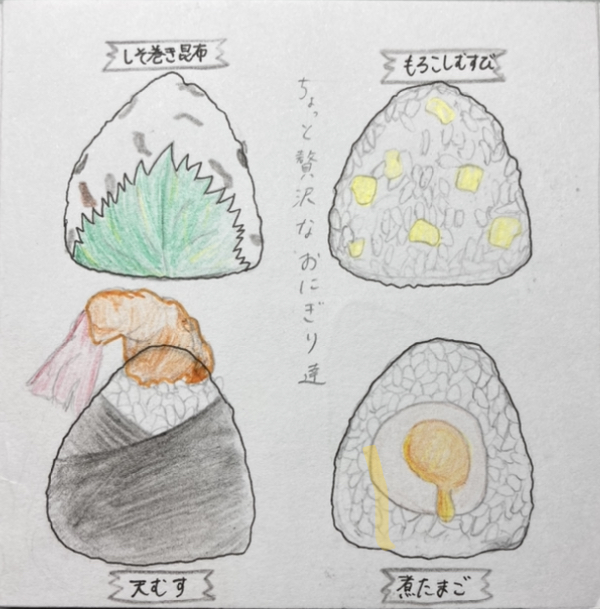 しそ巻き昆布
もろこしむすび
ちょっと贅沢なおにぎり達
天むす
煮たまご